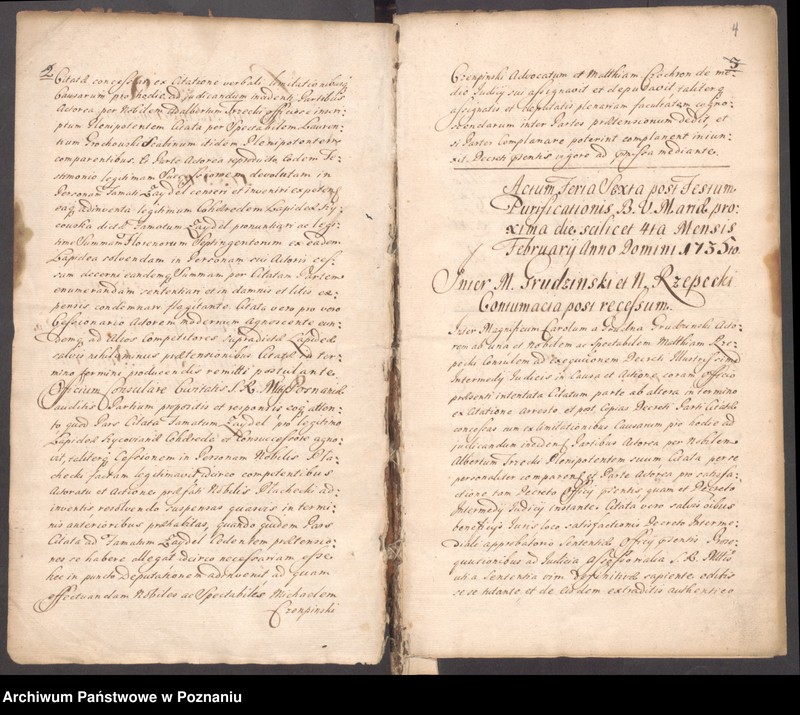 2
Citatæ concessas ex Citatione verbali limitationibusq;
Causarum pro hodie ad judicandum inciden: Partibus
Actorea per Nobilem Adalbertum Trzecki officiose inscri:
ptum Plenipotentem Citata per Spectabilem Lauren:
tium Grochowski itidem Plenipotentem
comparentibus. Et Parte Actorea reproducta eodem Te:
stimonio legitimam Successionem devolutam in
Personam Famati Zaydel censeri et inveniri expeten:
eaq; adinventa legitimum Cohæredem Lapideæ
dictæ Famatum Zaydel pronuntiari ac legi:
time Summam Florenorum Septingentorum ex eadem
Lapidea solvendam in Personam sui Actoris cess:
sam decerni eandemq; Summam per Citatam Partem
enumerandam sententiari et in damnis et litis ex:
pensis condemnari flagitante. Citata vero pro vero
Cessionario Actorem modernum Agnoscente eun:
demq; ad alios Competitores supradictæ Lapideæ
salvis nihilominus prætensionibus Citatæ ad ter:
mino termini producendis remitti postulante.
Officium Consulare Civitatis S. R. Mttis Posnaniæ
auditis Partium propositis et responsis eoq; atten:
to quod Pars Citata Famatum Zaydel pro legitimo
Lapideæ Cohærede et Consuccessore agno:
vit, taliterq; Cessionem in Personam Nobilis Pla:
checki factam legitimavit, idcirco competentibus
Actoratu et Actione præfati Nobilis Plachecki ad:
inventis resolvendo suspensas quasvis in termi:
nis anterioribus præhabitas, quando quidem Pars
Citata ad Famatum Zaydel eadem prætensio:
nes se habere allegat idcirco necessariam esse
hoc in puncto Deputationem adinvenit ad quam
effectuandam Nobiles ac Spectabiles Michaelem
Czenpinski
4
3
Czenpinski Advocatum et Matthiam Czochron de me:
dio Judicij sui assignavit et deputavit taliterq;
assignatis et deputatis plenariam facultatem cogno:
scendarum inter Partes prætensionum dedit, et
si Partes Complanare poterint complanent injun:
xit. Decreti præsentis vigore ad præmissa mediante.
Actum Feria Sexta post Festum
Purificationis B. V. Mariæ pro:
xima die scilicet 4ta Mensis
February Anno Domini 1735to
Inter M. Grudzinski et N. Rzepecki
Contumacia post recessum.
Inter Magnificum Carolum a Grudna Grudzinski Acto:
rem ab una et Nobilem ac Spectabilem Matthiam Rze:
pecki Consulem ad Executionem Decreti Illustrissimi
Intermedij Judicis in Causa et Actione coram Officio
præsenti intentata Citatum parte ab altera in termino
ex Citatione Arresto et post copias Decreti Parti Citatæ
concessas tum ex limitationibus Causarum pro hodie ad
judicandum inciden: Partibus Actorea per Nobilem
Albertum Trzecki Plenipotentem suum Citata per se
personaliter comparen: et Parte Actorea pro satisfa:
ctione tam Decreto Officij præsentis quam et Decreto
Intermedij Judicij instante. Citata vero salvis oibus
beneficijs Juris loco satisfactionis Decreto Interme:
diali approbatorio Sententiæ Officij præsentis Pros:
quutionibus ad Judicia Assessorialia S. R. Mttis
uti a Sententia vim Definitivæ sapiente oditis
sese tutante, et de eodem extraditio authentico